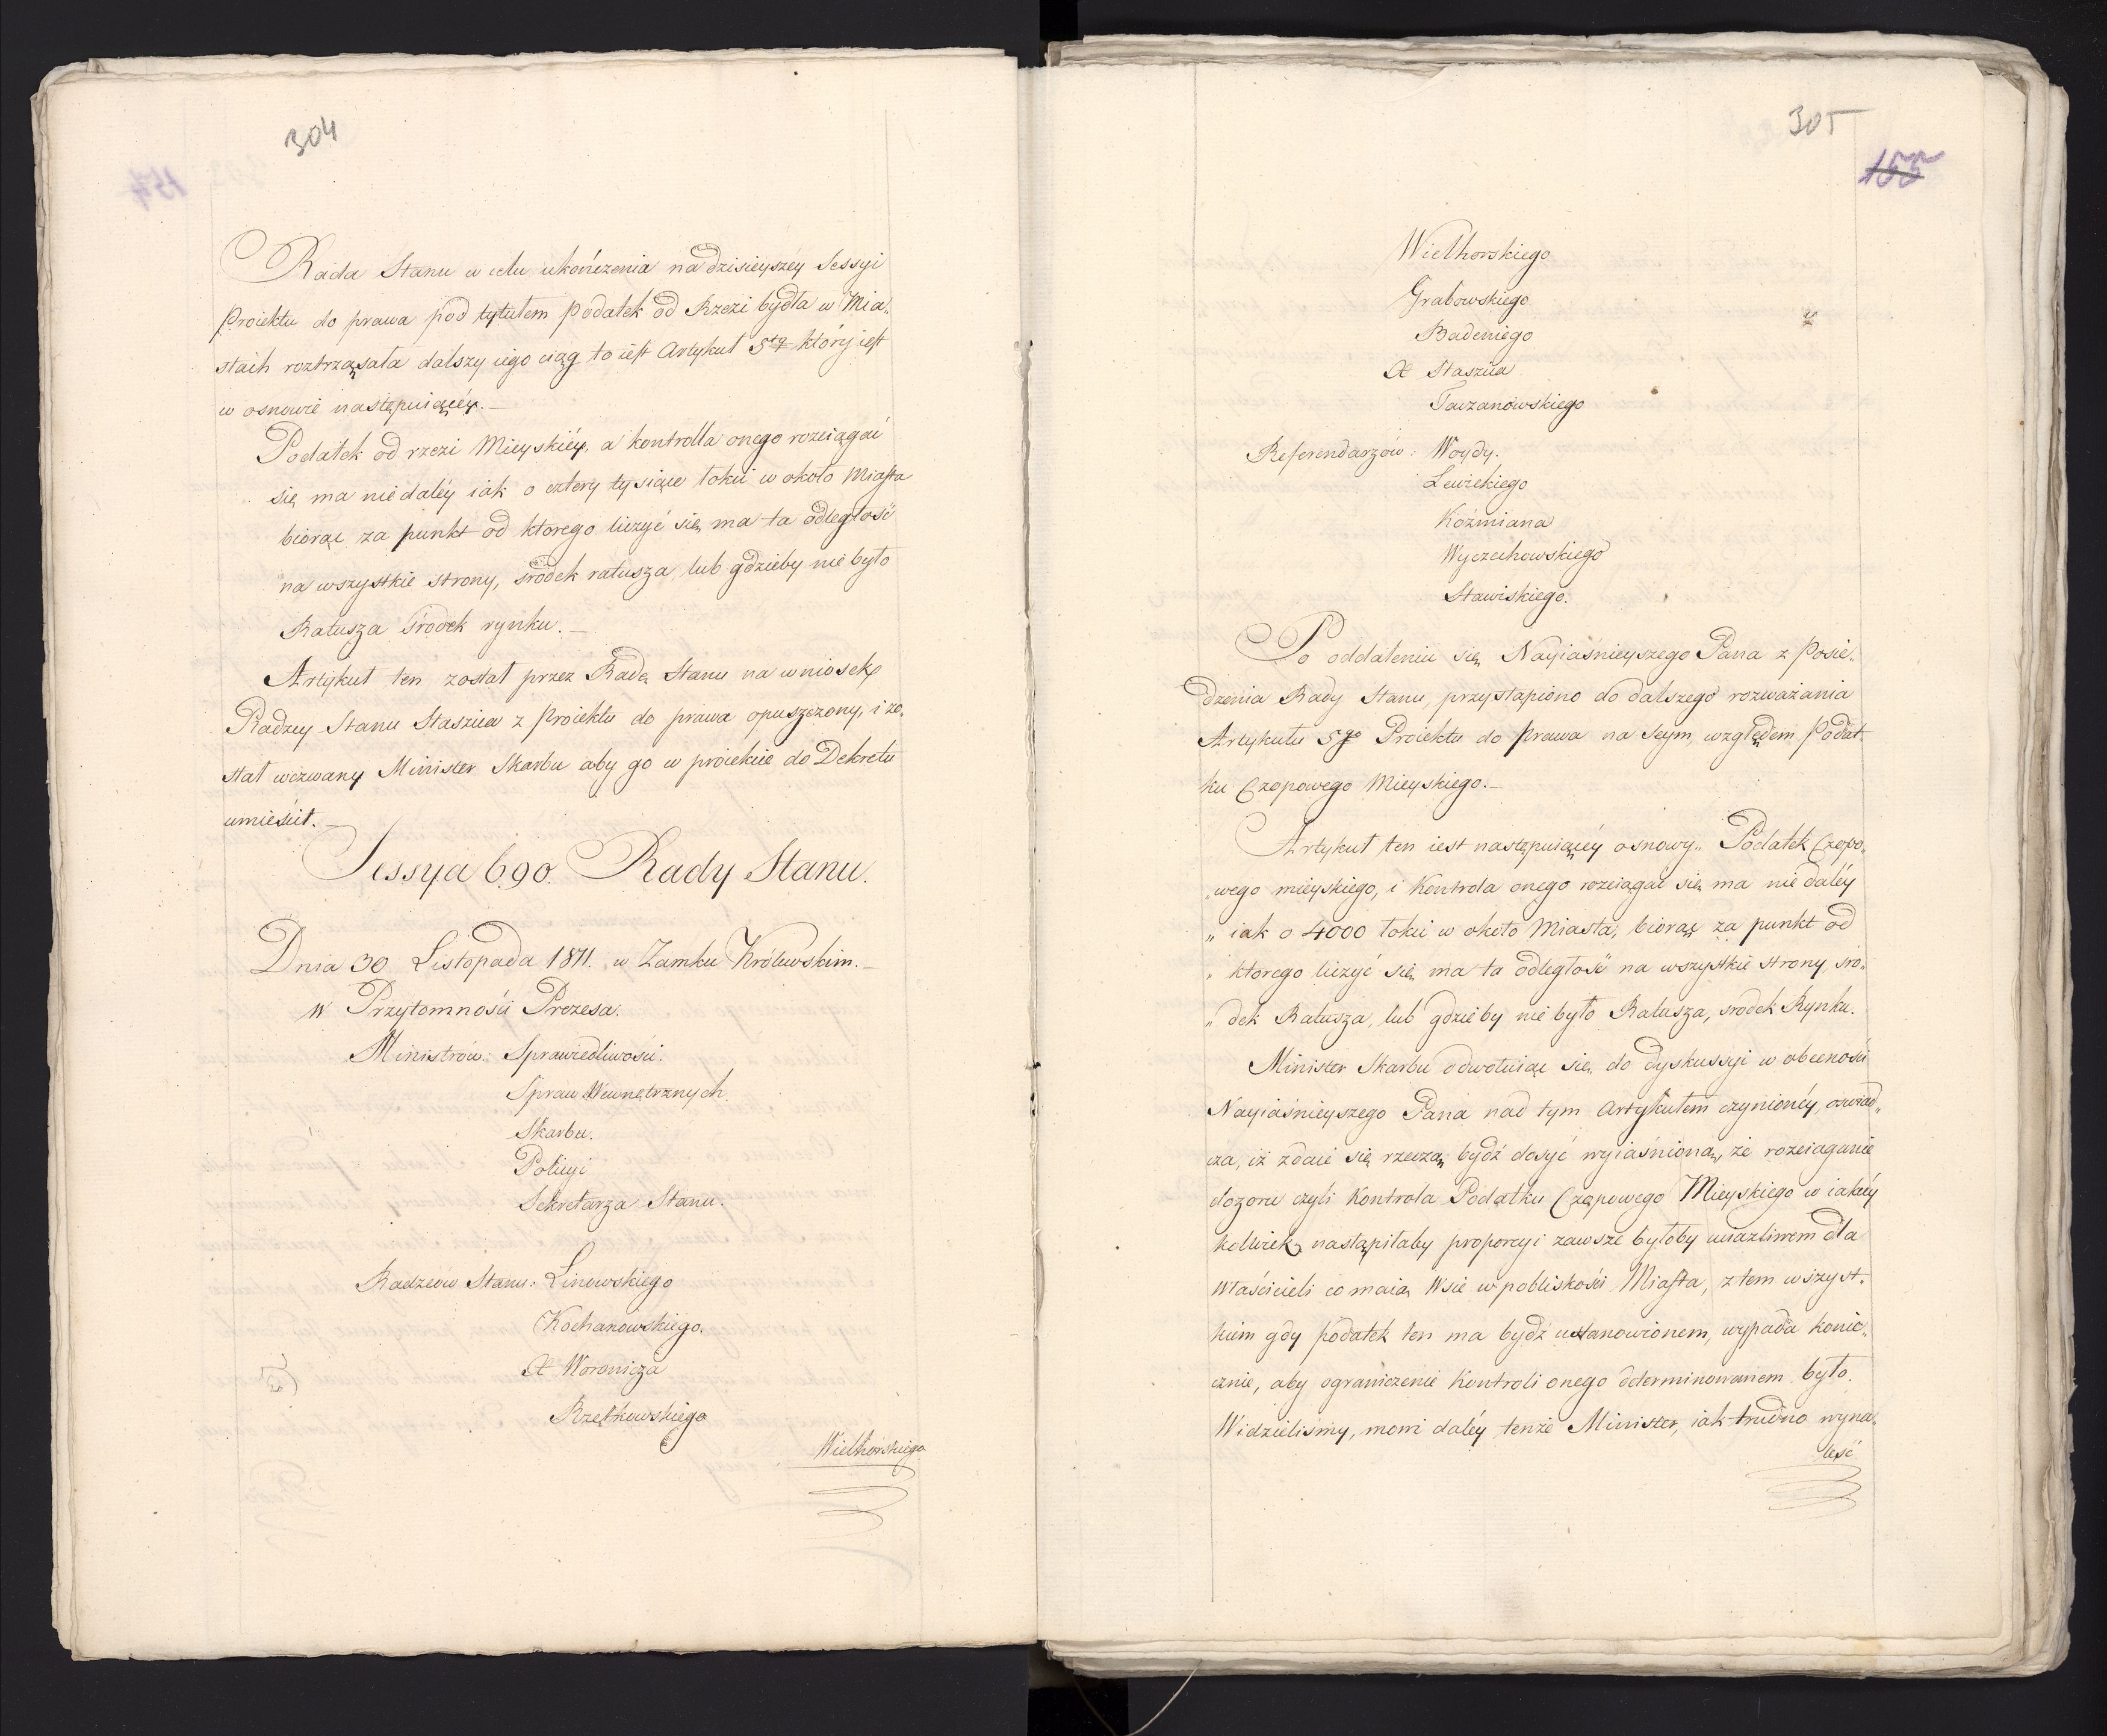 304
Rada Stanu w celu ukończenia na dzisieyszéy Sessyi
Proiektu do prawa pod tytułem Podatek od Rzezi bydła w Mia„
stach roztrząsała dalszy iego ciąg to iest Artykuł 5ty który iest
w osnowie następuiącéy. —
Podatek od rzezi Mieyskiéy, a kontrolla onego rozciągać
się ma nie daléy iak o cztery tysiące łokci w około Miasta
biorąc za punkt od ktorego liczyć się ma ta odległość
na wszystkie strony, środek ratusza, lub gdzieby nie było
Ratusza środek rynku. —
Artykuł ten został przez Radę Stanu na wniosek
Radzcy Stanu Staszica z Proiektu do prawa opuszczony, i zo„
stał wezwany Minister Skarbu aby go w proiekcie do Dekretu
umieścił. —
Sessya 690. Rady Stanu.
Dnia 30 Listopada 1811. w Zamku Królewskim. —
w Przytomności Prezesa.
Ministrów: Sprawiedliwości.
Spraw Wewnętrznych.
Skarbu.
Policyi
Sekretarza Stanu.
Radzców Stanu: Linowskiego
Kochanowskiego.
X Woronicza
Rzętkowskiego
Wielhorskiego
305
155
Wielhorskiego
Grabowskiego
Badeniego
X Staszica
Tarzanowskiego
Referendarzów: Woydy.
Lewickiego
Koźmiana
Wyczechowskiego
Stawiskiego.
Po oddaleniu się Nayiaśnieyszego Pana z Posie„
dzenia Rady Stanu, przystąpiono do dalszego rozważania
Artykułu 5go Proiektu do Prawa na Seym, względem Podat
ku Czopowego Mieyskiego. —
Artykuł ten iest następuiącéy osnowy „ Podatek Czopo„
„wego mieyskiego, i Kontrola onego rozciągać się ma nie daléy
„ iak o 4000 łokci w około Miasta, biorąc za punkt od
„ ktorego liczyć się ma ta odległość na wszystkie strony, śro„
„ dek Ratusza, lub gdzieby nie było Ratusza, srodek Rynku.
Minister Skarbu odwołuiąc się do dyskussyi w obecności
Nayiaśnieyszego Pana nad tym Artykułem czynionéy, oswiad„
cza, iż zdaie się rzeczą bydź dosyć wyiaśnioną, że rozciąganie
dozoru czyli Kontrola Podatku Czopowego Mieyskiego w iakiéy
kolwiek nastąpiłaby proporcyi zawsze byłoby uciążliwem dla
Właścicieli co maią Wsie w pobliskości Miasta, z tem wszyst„
kiem gdy podatek ten ma bydź ustanowionem, wypada konie„
cznie, aby ograniczenie Kontroli onego determinowanem było.
Widzielismy, mowi daléy tenże Minister, iak trudno wyna„
leść